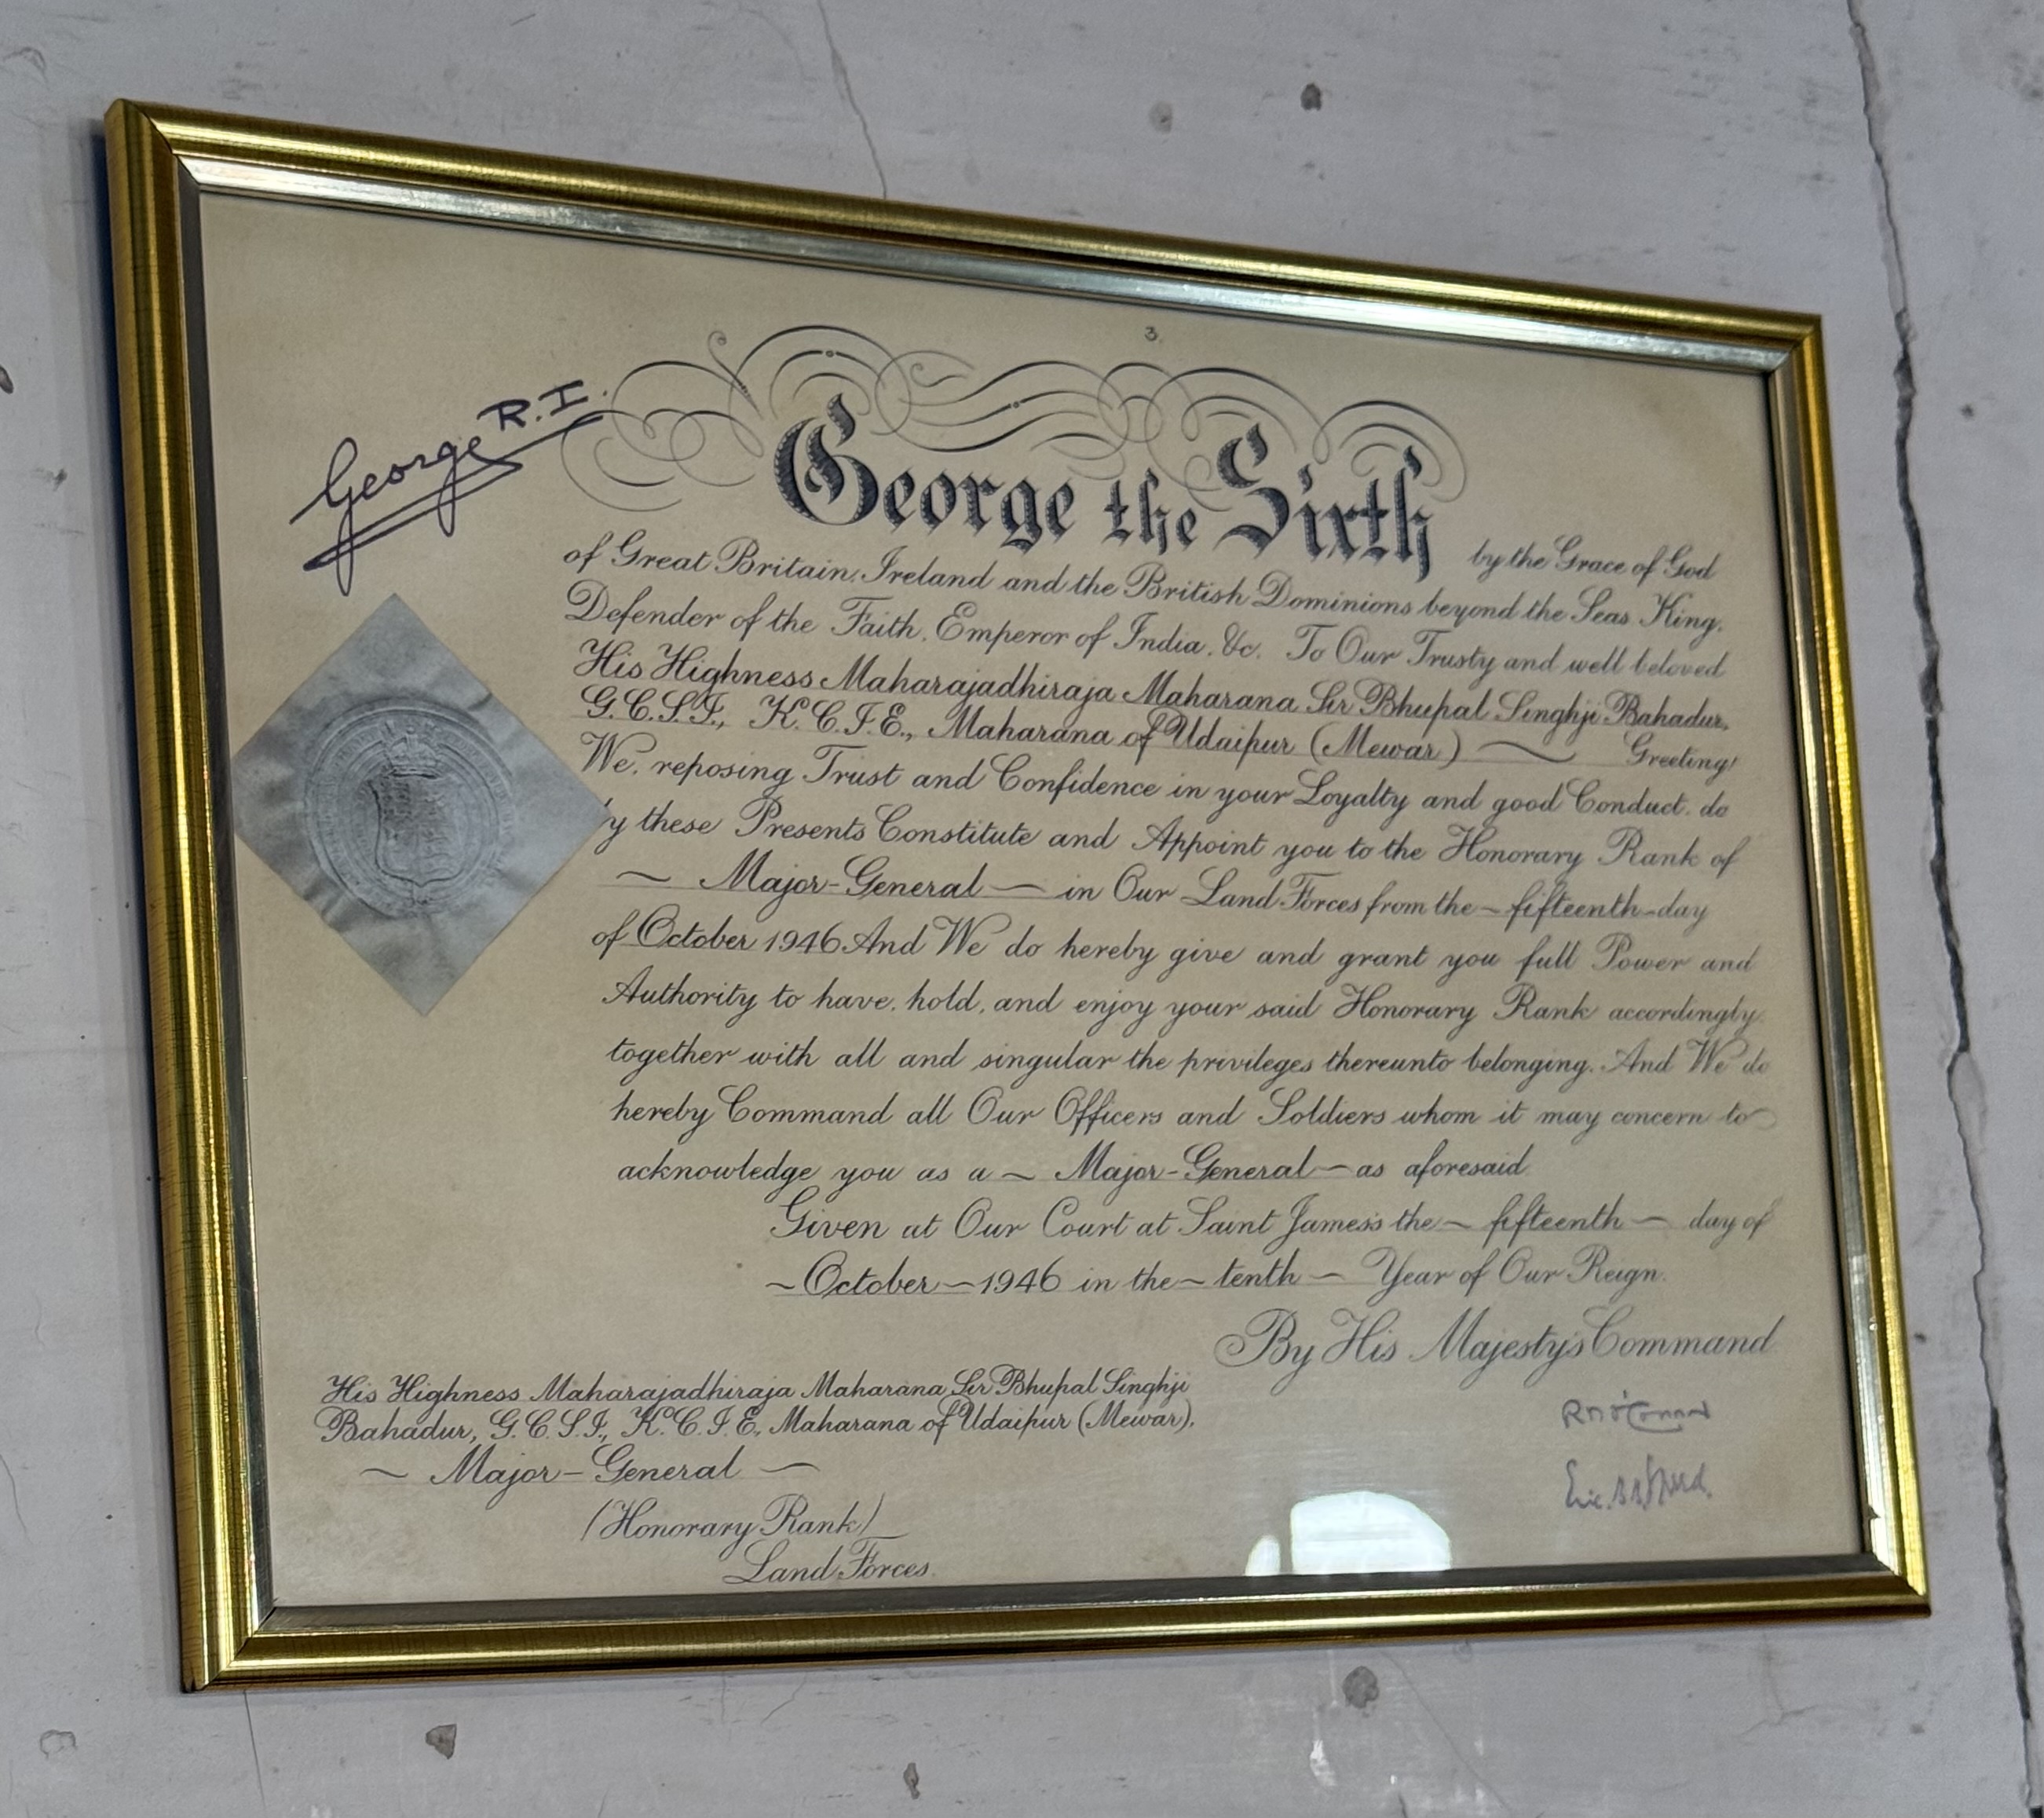 3.
George R.I.
George the Sixth by the Grace of God
of Great Britain, Ireland and the British Dominions beyond the Seas King,
Defender of the Faith, Emperor of India, &c. To Our Trusty and well beloved
His Highness Maharajadhiraja Maharana Sir Bhupal Singhji Bahadur,
G.C.S.I., K.C.I.E., Maharana of Udaipur (Mewar) Greeting!
We, reposing Trust and Confidence in your Loyalty and good Conduct, do
y these Presents Constitute and Appoint you to the Honorary Rank of
~ Major-General — in Our Land Forces from the - fifteenth - day
of October 1946 And We do hereby give and grant you full Power and
Authority to have, hold, and enjoy your said Honorary Rank accordingly,
together with all and singular the privileges thereunto belonging. And We do
hereby Command all Our Officers and Soldiers whom it may concern to
acknowledge you as a ~ Major-General — as aforesaid
Given at Our Court at Saint James's the ~ fifteenth — day of
~ October — 1946 in the ~ tenth — Year of Our Reign.
By His Majesty's Command
His Highness Maharajadhiraja Maharana Sir Bhupal Singhji
Bahadur, G.C.S.I., K.C.I.E., Maharana of Udaipur (Mewar),
~ Major-General ~
(Honorary Rank)
Land Forces.